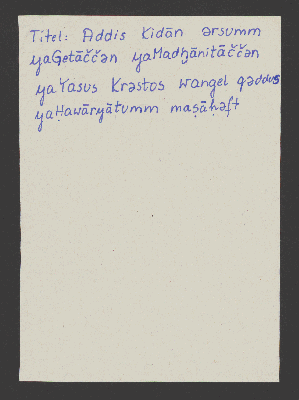 Titel: Addis Kidān ərsumm
yaGetāččən yaMadḫānitāččən
yaYasus Krəstos wangel qəddus
yaḤawāryātumm maṣāḥəft